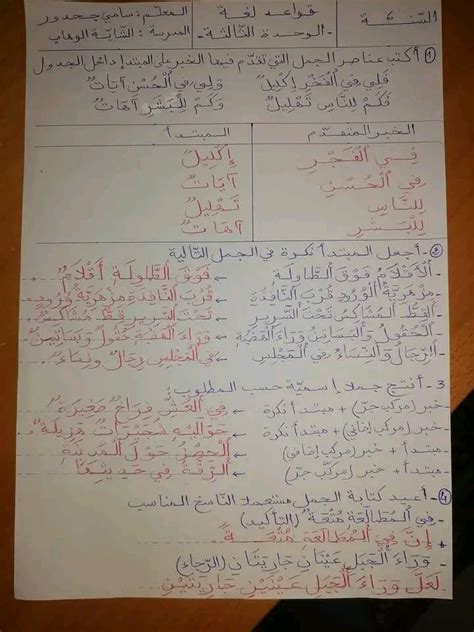 السّنة 6
قواعد لغة
- الوحدة الثالثة -
المعلّم: سامي جحدور
المدرسة: الشّابّة الوهاب
1 أكتب عناصر الجمل التي تقدّم فيها الخبر على المبتدإ داخل الجدول
فَلِي فِي الْفَجْرِ إِكْلِيلٌ وَلِي فِي الْحُسْنِ آيَاتٌ
فَكَمْ لِلنَّاسِ تَهْلِيلٌ وَكَمْ لِلْبَشَرِ آهَاتٌ
الخبر المتقدّم المبتدأ
فِي الْفَجْرِ إِكْلِيلٌ
فِي الْحُسْنِ آيَاتٌ
لِلنَّاسِ تَهْلِيلٌ
لِلْبَشَرِ آهَاتٌ
2 - أجعل المبتدأ نكرة في الجمل التّالية
- الْأَقْلَامُ فَوْقَ الطَّاوِلَةِ ← فَوْقَ الطَّاوِلَةِ أَقْلَامٌ
- مِزْهَرِيَّةُ الْوُرُودِ قُرْبَ النَّافِذَةِ ← قُرْبَ النَّافِذَةِ مِزْهَرِيَّةُ وُرُودٍ
- الْقِطُّ الْمُشَاكِسُ تَحْتَ السَّرِيرِ ← تَحْتَ السَّرِيرِ قِطٌّ مُشَاكِسٌ
- الْحُقُولُ وَالْبَسَاتِينُ وَرَاءَ الْهَضْبَةِ ← وَرَاءَ الْهَضْبَةِ حُقُولٌ وَبَسَاتِينُ
- الرِّجَالُ وَالنِّسَاءُ فِي الْمَجْلِسِ ← فِي الْمَجْلِسِ رِجَالٌ وَنِسَاءٌ
3 - أنتج جملا إسميّة حسب المطلوب:
خبر (مركب جرّ) + مبتدأ نكرة ← فِي الْعُشِّ فِرَاخٌ صَغِيرَةٌ
خبر (مركب إضافي) + مبتدأ نكرة ← حَوَالَيْهِ شُجَيْرَاتٌ هَزِيلَةٌ
مبتدأ + خبر (مركب إضافي) ← الْحِصْنُ حَوْلَ الْمَدِينَةِ
مبتدأ + خبر (مركب جرّ) ← الرِّقَّةُ فِي حَدِيثِهَا
4 - أعيد كتابة الجمل مستعملا النّاسخ المناسب
- فِي الْمُطَالَعَةِ مُتْعَةٌ (التأكيد)
إِنَّ فِي الْمُطَالَعَةِ مُتْعَةً
- وَرَاءَ الْجَبَلِ عَيْنَانِ جَارِيَتَانِ (الرّجاء)
لَعَلَّ وَرَاءَ الْجَبَلِ عَيْنَيْنِ جَارِيَتَيْنِ